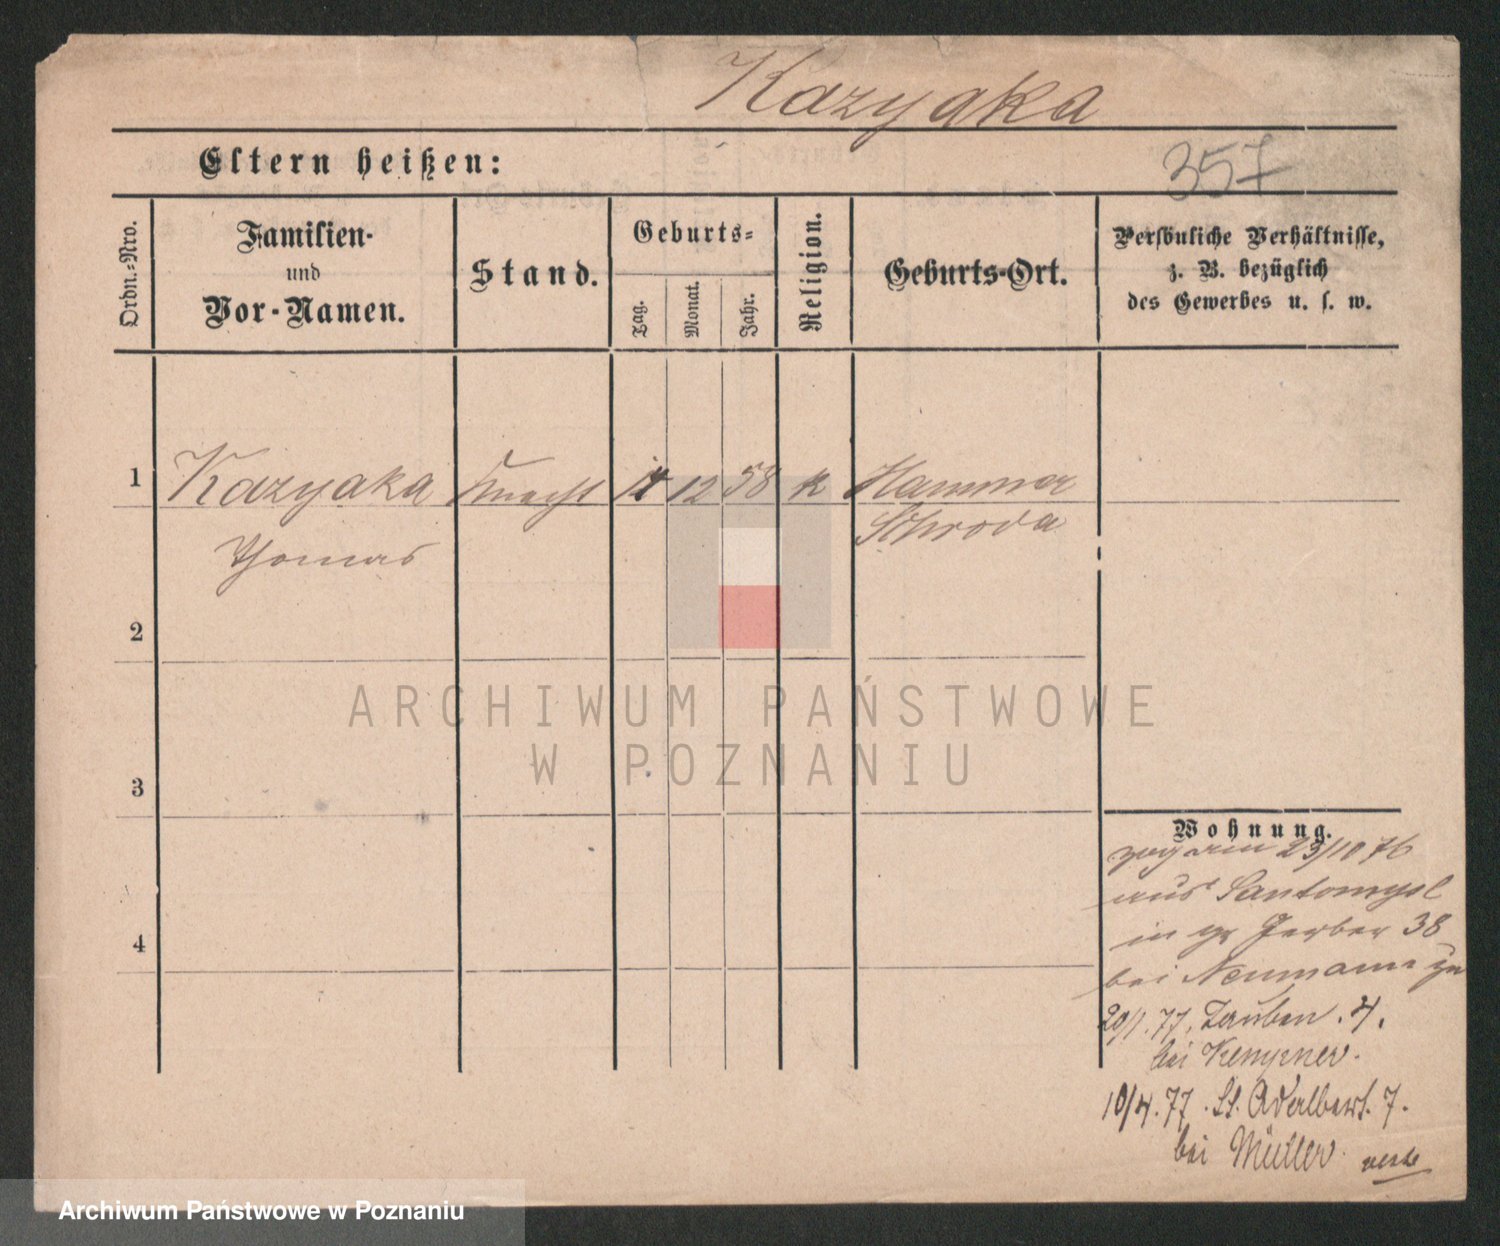 Kazyaka
Eltern heißen:
357
Ordn.=Nro.
Familien-
und
Vor-Namen.
Stand.
Geburts=
Tag.
Monat.
Jahr.
Religion.
Geburts-Ort.
Persönliche Verhältnisse,
z. B. bezüglich
des Gewerbes u. s. w.
1 Kazyaka Knecht 12 58 k Hammer
Thomas Schroda
2
ARCHIWUM PAŃSTWOWE
W POZNANIU
3
Wohnung.
23/10 76
aus Santomysl
in gr Gerber 38
bei Neumann
4
20/1. 77. Tauben. 4.
bei Kempner.
10/4. 77. St. Adalbert. 7.
bei Müller
Archiwum Państwowe w Poznaniu